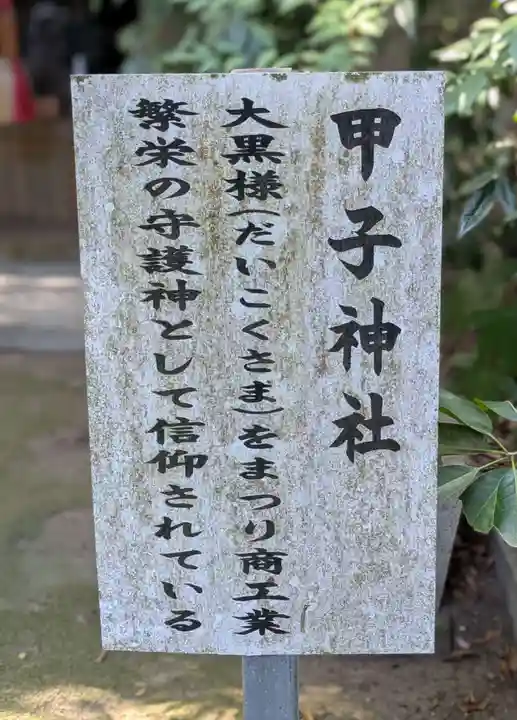 甲子神社
大黒様(だいこくさま)をまつり商工業
繁栄の守護神として信仰されている